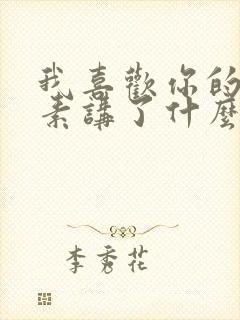 我喜歡你的
素講了什麼
李秀花